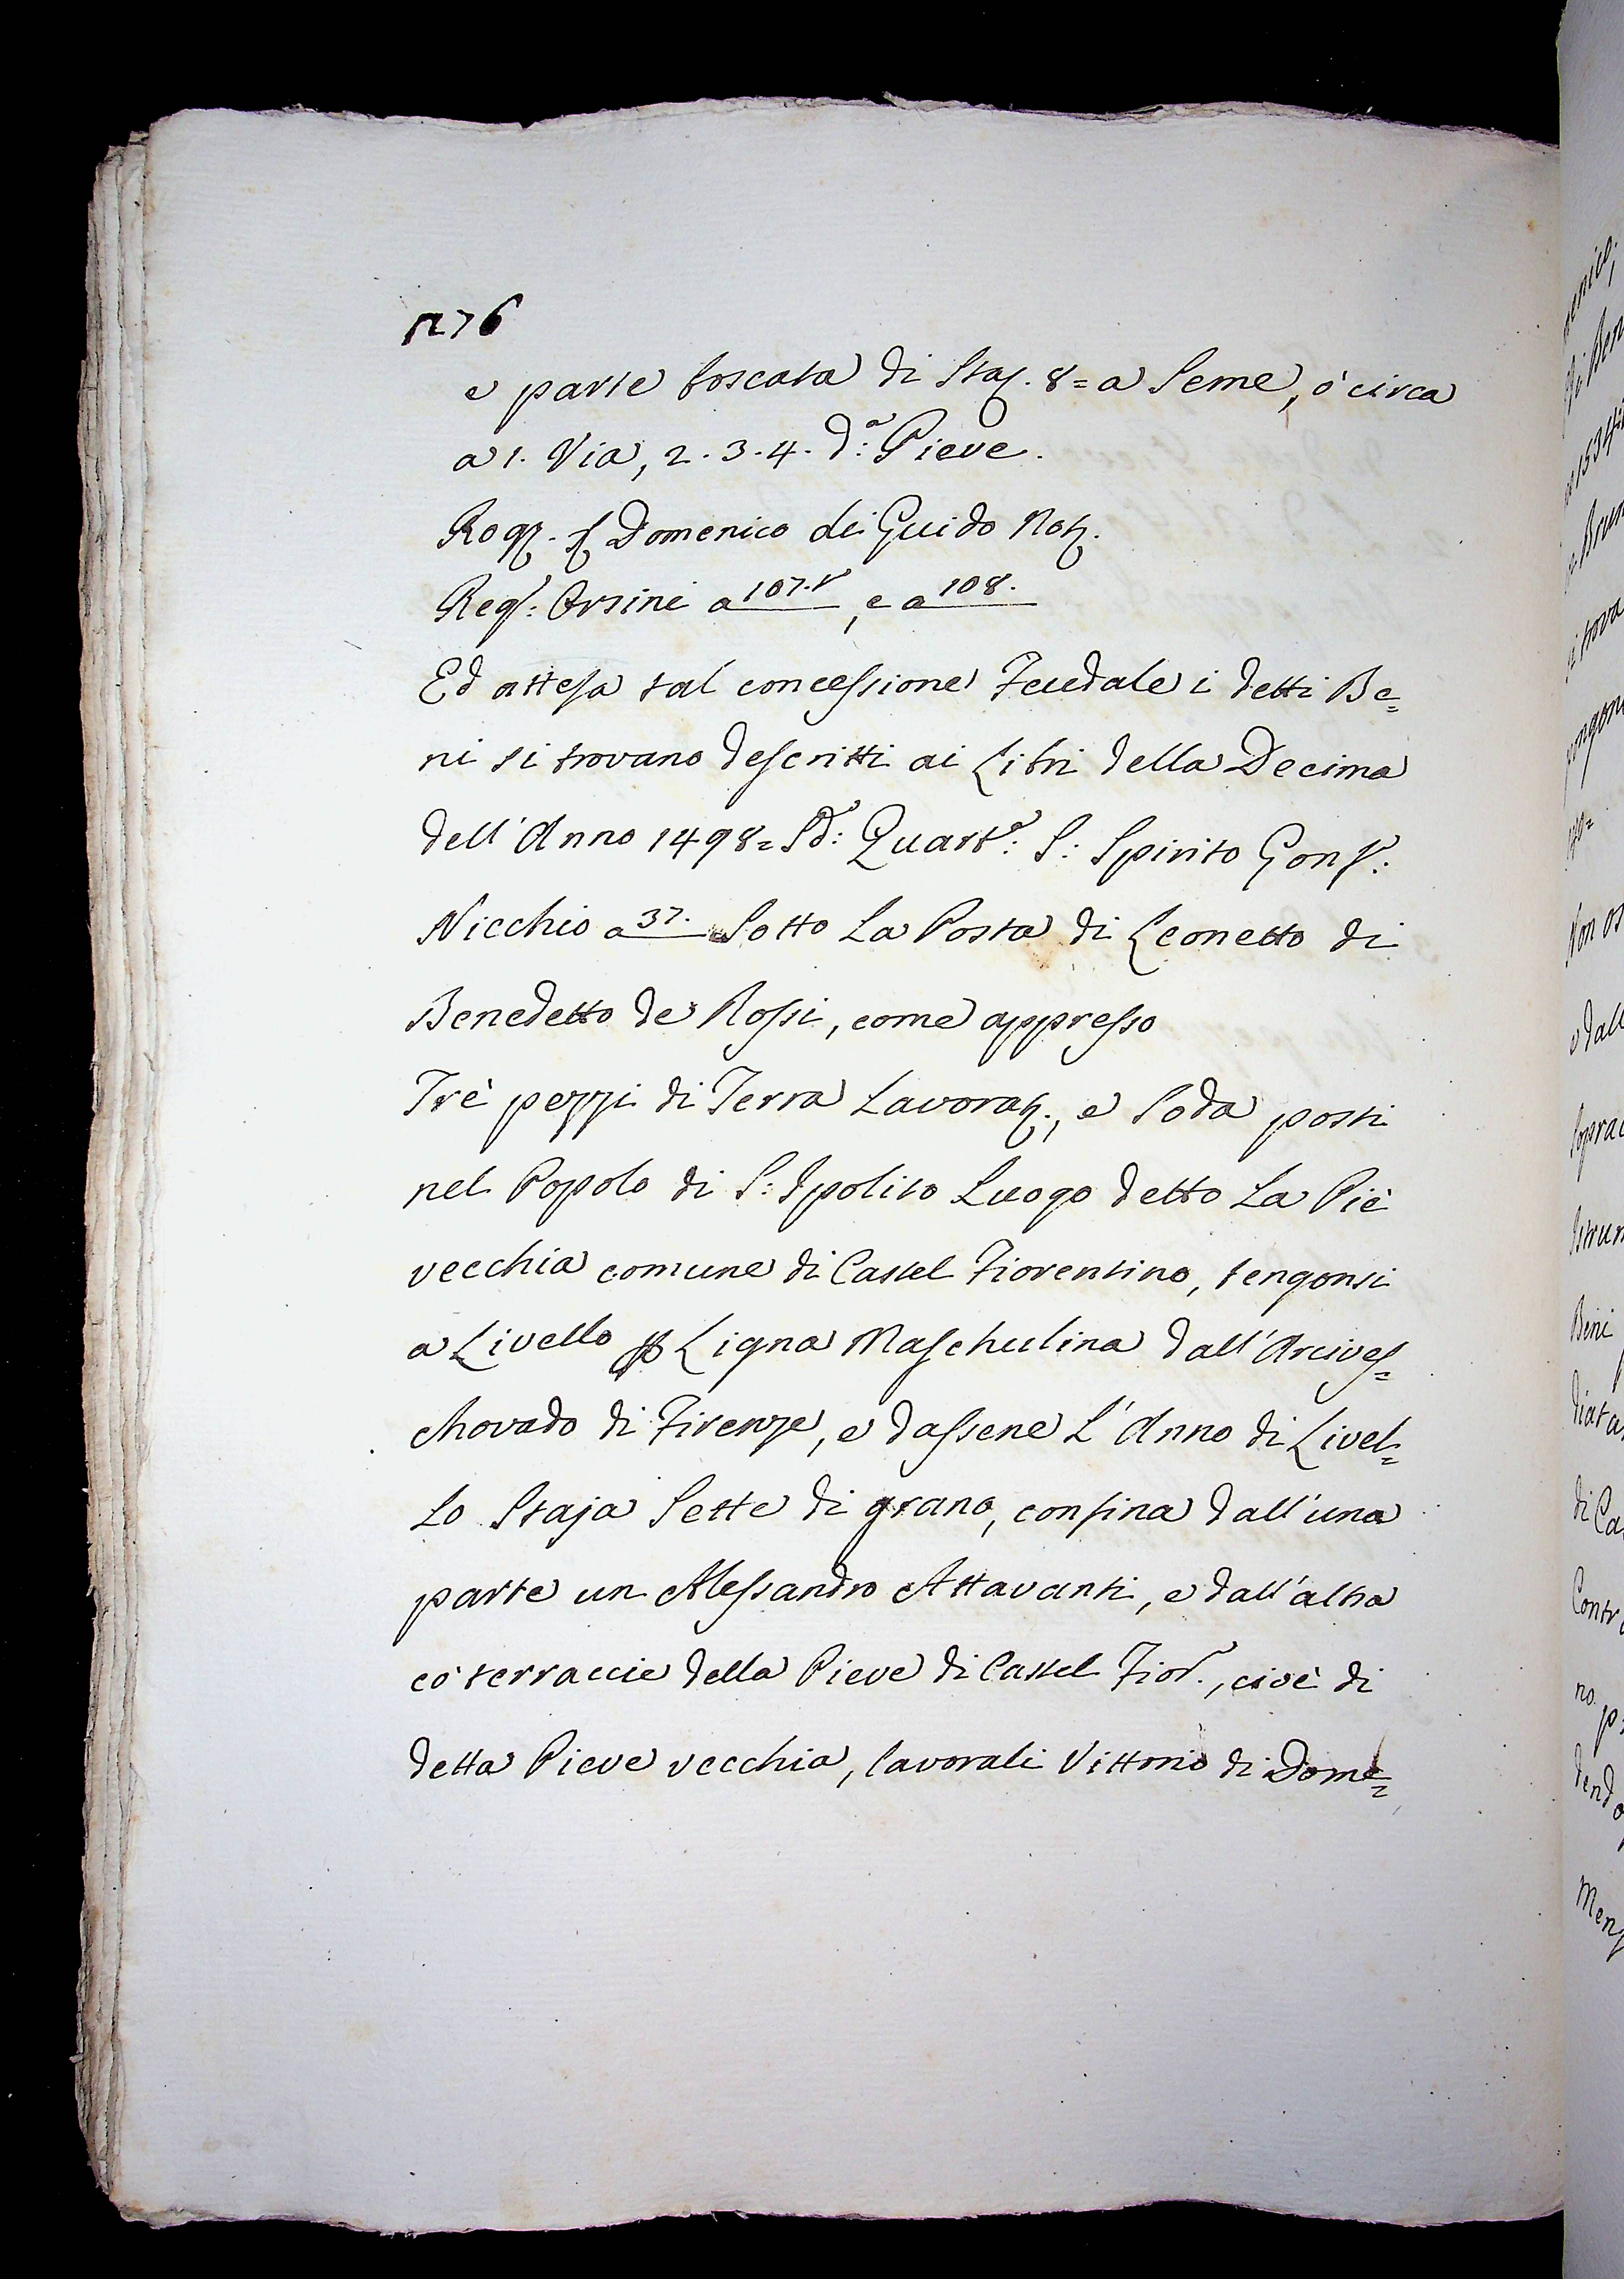 n 76
e parte boscata di Staj. 8 = a Seme, ò circa
a 1. Via, 2. 3. 4. d.ª Pieve.
Rog. S. Domenico di Guido Not.
Reg.: Orsini a 107.t, e a 108.
Ed attesa tal concessione Feudale i detti Be=
ni si trovano descritti ai Libri della Decima
dell'Anno 1498 = Sd: Quart.e: S: Spirito Gonf.:
Nicchio a 37. Sotto La Posta di Leonetto di
Benedetto de Rossi, come appresso
Trè pezzi di Terra Lavorat., e Soda posti
nel Popolo di S: Ipolito Luogo detto La Piè
vecchia comune di Castel Fiorentino, tengonsi
a Livello p Ligna Maschulina dall'Arcives=
chovado di Firenze, e dassene L'Anno di Livel=
Lo Staja Sette di grano, confina dall'una
parte un Alessandro Attavanti, e dall'altra
co' terraccie della Pieve di Castel Fior., cioè di
detta Pieve vecchia, lavorali Vittorio di Dome=